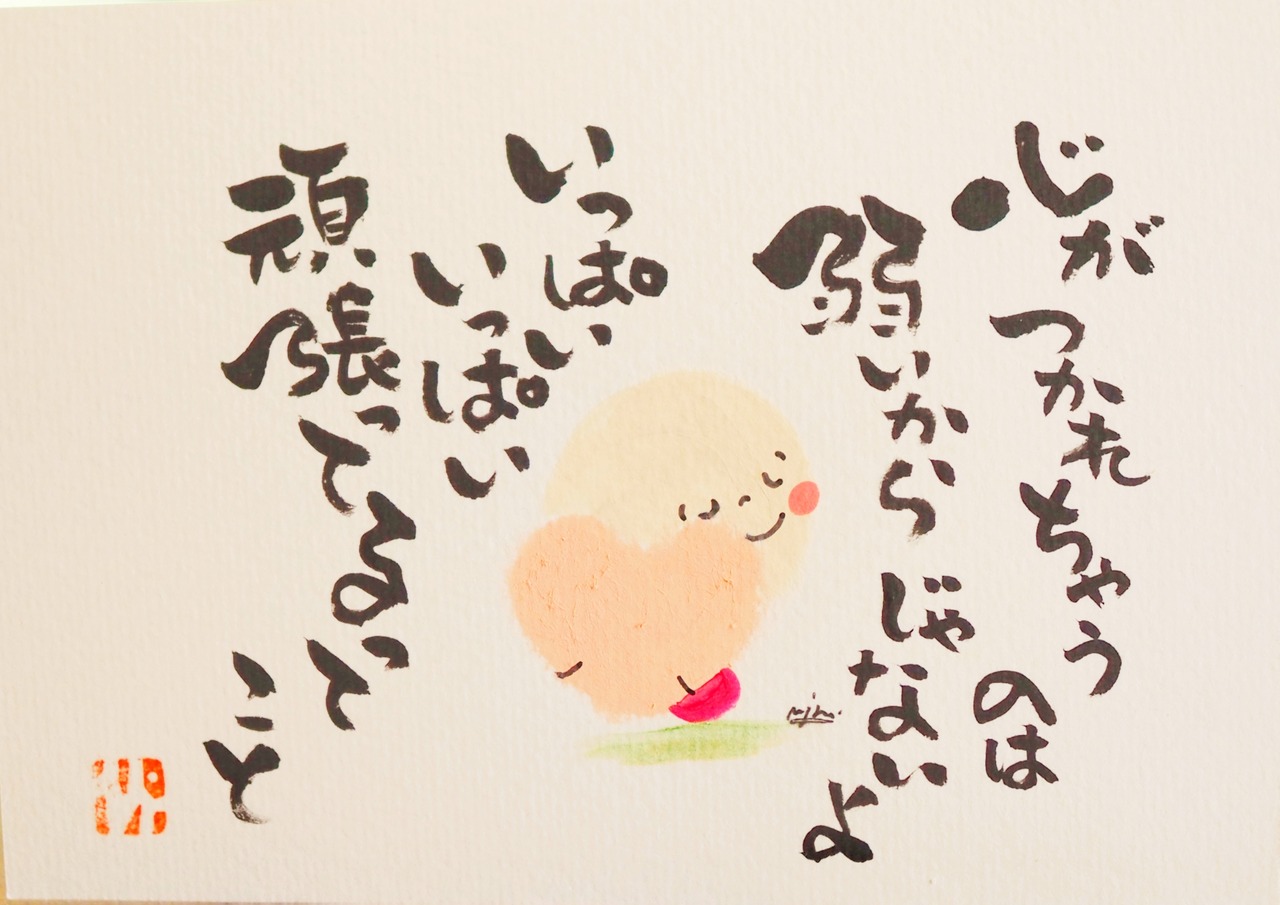 心が
つかれちゃう
のは
弱いから
じゃないよ
いっぱい
いっぱい
頑張ってるって
こと